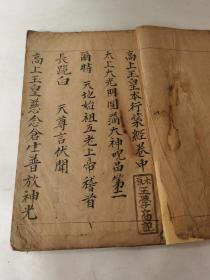 高上玉皇本行集經卷中
太上大光明圓滿大神咒品第二
爾時　天地始祖五老上帝稽首
長跪白　天尊言伏聞
高上玉皇慈念含生普放神光